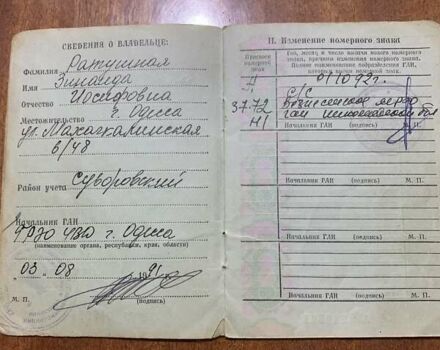 СВЕДЕНИЯ О ВЛАДЕЛЬЦЕ:
Фамилия Ратушная
Имя Зинаида
Отчество Иосифовна
Местожительство г. Одесса
ул. Махачкалинская
6/48
Район учета Суворовский
Начальник ГАИ
МРЭО УВД г. Одесса
(наименование органа, республики, края, области)
03 08 1991
М. П. (подпись)
II. Изменение номерного знака
Присвоен номерной знак
Год, месяц и число выдачи нового номерного знака, причина изменения номерного знака. Полное наименование подразделения ГАИ, которым выдан номерной знак.
011092г.
С/С
3772
НІ
Начальник ГАИ
(подпись) М. П.
Начальник ГАИ
(подпись) М. П.
Начальник ГАИ
(подпись) М. П.
Начальник ГАИ
(подпись) М. П.